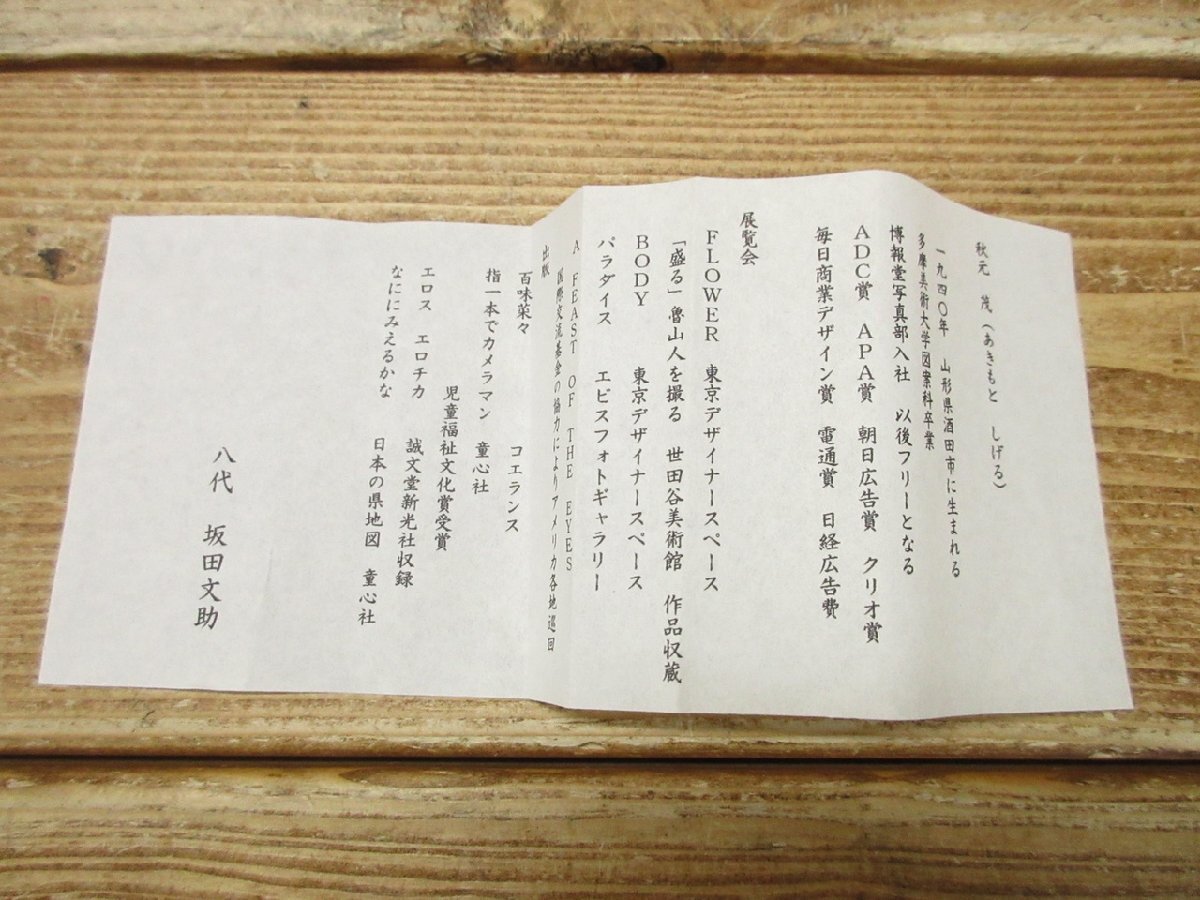 秋元 茂(あきもと しげる)
一九四〇年 山形県酒田市に生まれる
多摩美術大学図案科卒業
博報堂写真部入社 以後フリーとなる
ADC賞 APA賞 朝日広告賞 クリオ賞
毎日商業デザイン賞 電通賞 日経広告費
展覧会
FLOWER 東京デザイナースペース
「盛る」魯山人を撮る 世田谷美術館 作品収蔵
BODY 東京デザイナースペース
パラダイス エビスフォトギャラリー
A FEAST OF THE EYES
国際交流基金の協力によりアメリカ各地巡回
出版
百味菜々 コエランス
指一本でカメラマン 童心社
児童福祉文化賞受賞
エロス エロチカ 誠文堂新光社収録
なににみえるかな 日本の県地図 童心社
八代 坂田文助